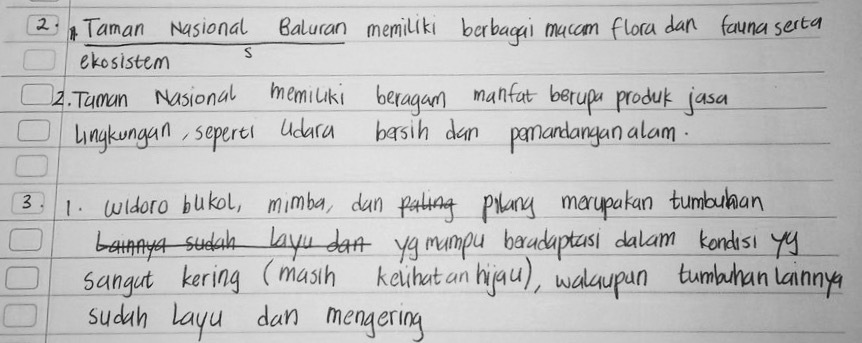 2. 1. Taman Nasional Baluran memiliki berbagai macam flora dan fauna serta
ekosistem S
2. Taman Nasional memiliki beragam manfat berupa produk jasa
lingkungan, seperti udara bersih dan pemandangan alam.
3. 1. Widoro bukol, mimba, dan paling pilang merupakan tumbuhan
Lainnya sudah layu dan yg mampu beradaptasi dalam kondisi yg
sangat kering (masih kelihatan hijau), walaupun tumbuhan lainnya
sudah layu dan mengering